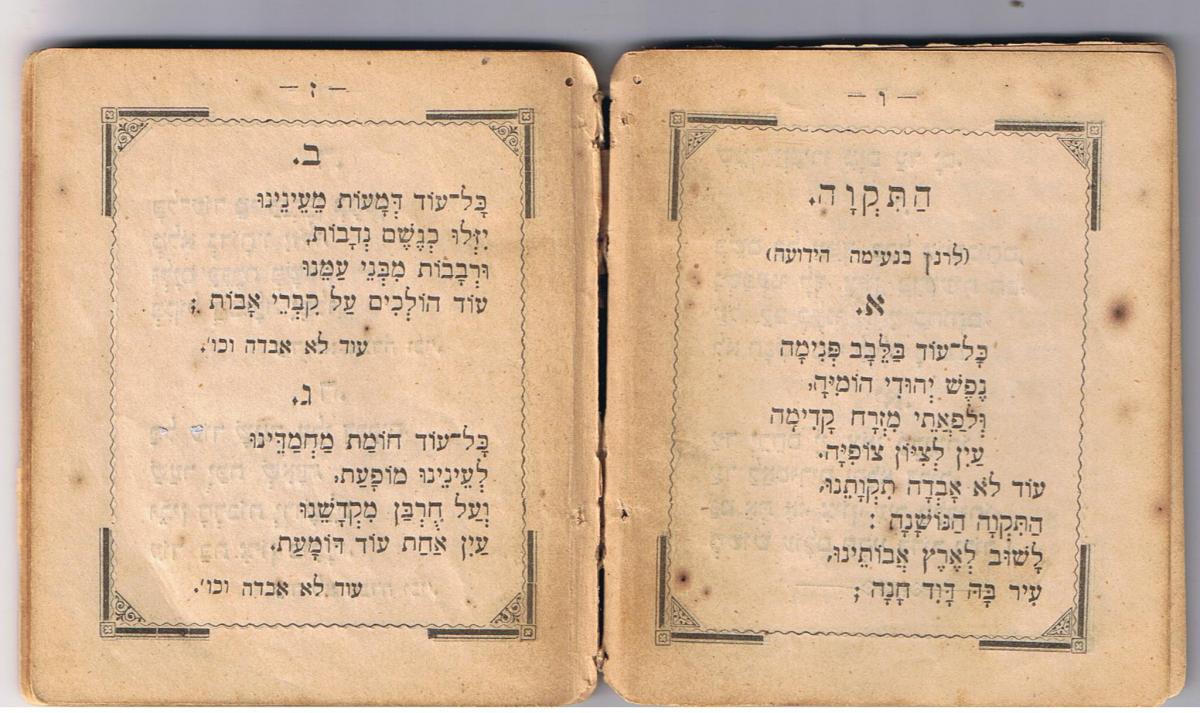 — ו —
הַתִּקְוָה.
(לרנן בנעימה הידועה)
א.
כָּל־עוֹד בַּלֵּבָב פְּנִימָה
נֶפֶשׁ יְהוּדִי הוֹמִיָּה,
וּלְפַאֲתֵי מִזְרָח קָדִימָה
עַיִן לְצִיּוֹן צוֹפִיָּה.
עוֹד לֹא אָבְדָה תִקְוָתֵנוּ,
הַתִּקְוָה הַנּוֹשָׁנָה :
לָשׁוּב לְאֶרֶץ אֲבוֹתֵינוּ,
עִיר בָּהּ דָּוִד חָנָה ;
— ז —
ב.
כָּל־עוֹד דְּמָעוֹת מֵעֵינֵינוּ
יִזְּלוּ כְגֶשֶׁם נְדָבוֹת,
וּרְבָבוֹת מִבְּנֵי עַמֵּנוּ
עוֹד הוֹלְכִים עַל קִבְרֵי אָבוֹת ;
עוד לא אבדה וכו'.
ג.
כָּל־עוֹד חוֹמַת מַחֲמַדֵּינוּ
לְעֵינֵינוּ מוֹפָעַת,
וְעַל חֻרְבַּן מִקְדָּשֵׁנוּ
עַיִן אַחַת עוֹד דּוֹמָעַת.
עוד לא אבדה וכו'.